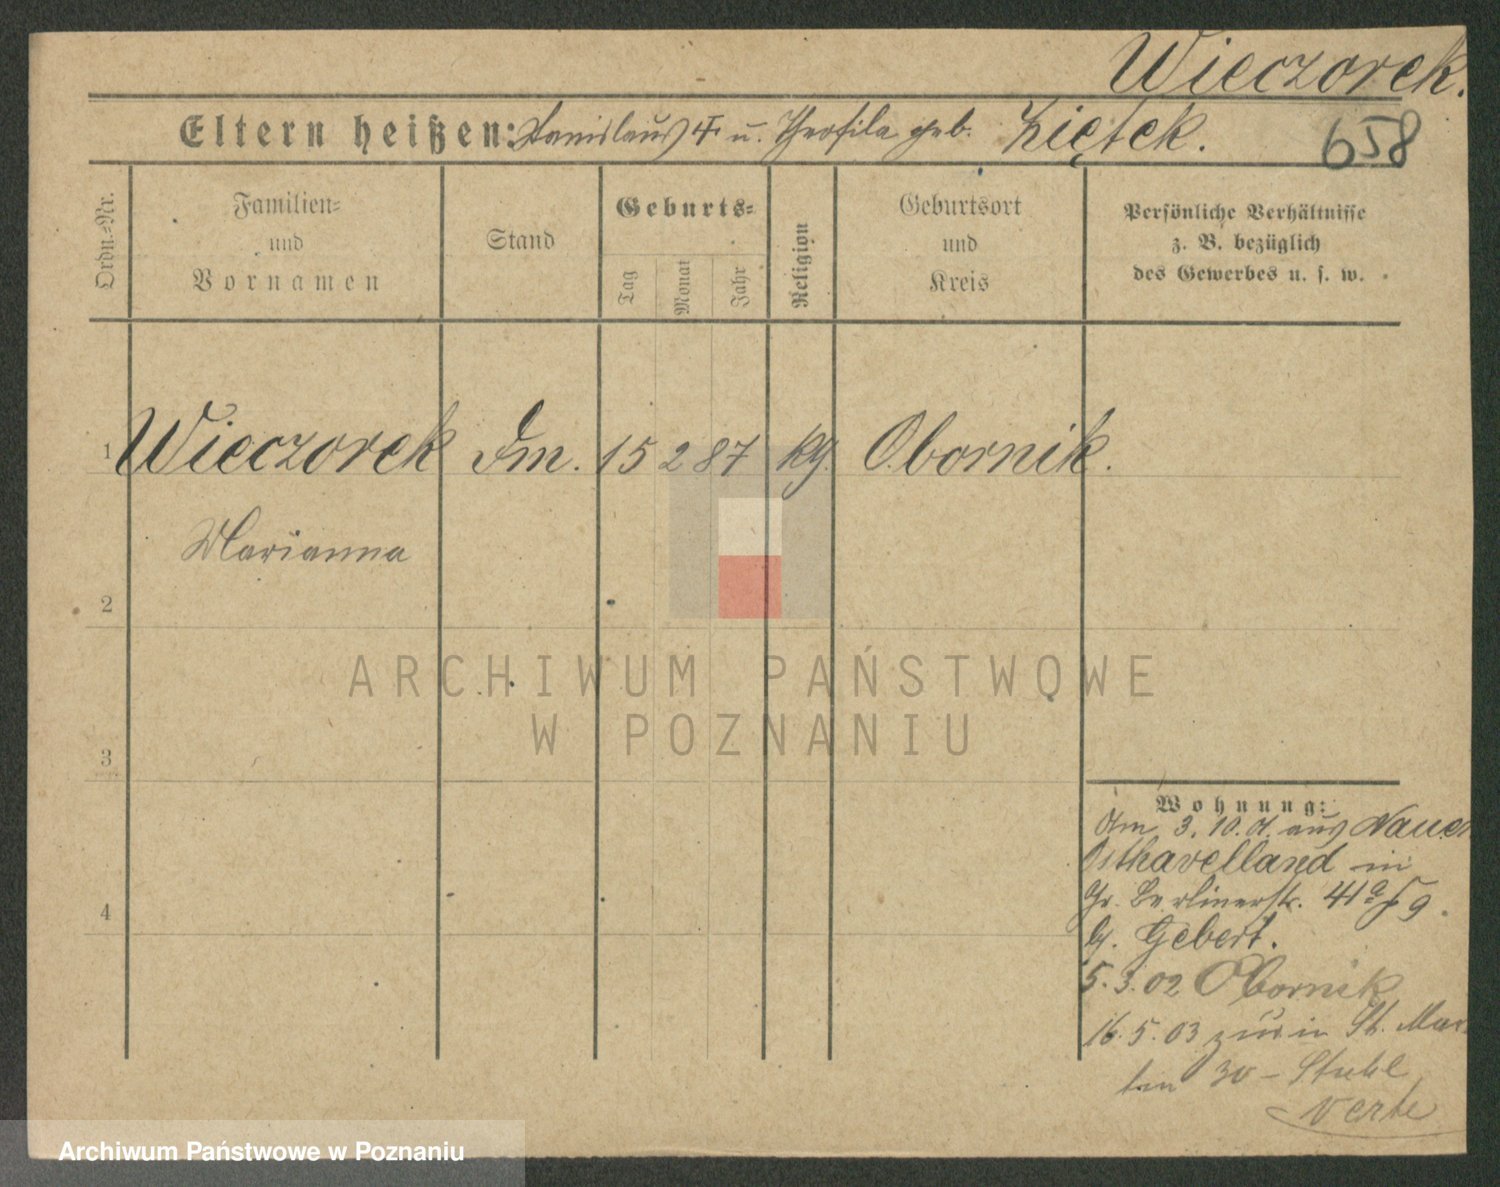 Wieczorek.
Eltern heißen: Stanislaus † u. Theofila geb. Ziętek.
658
Ordn.-Nr.
Familien-
und
Vornamen
Stand
Geburts-
Tag
Monat
Jahr
Religion
Geburtsort
und
Kreis
Persönliche Verhältnisse
z. B. bezüglich
des Gewerbes u. s. w.
1 Wieczorek 15 2 87 Obornik.
Marianna
2
ARCHIWUM PAŃSTWOWE
W POZNANIU
3
4
Wohnung:
Am 3. 10. 01. aus Nauen
Osthavelland in
Gr. Berlinerstr. 41a
b. Gebert.
5.3.02 Obornik
16.5.03 zur. in St. Mar
tin 30 - Stuhl
verte
Archiwum Państwowe w Poznaniu